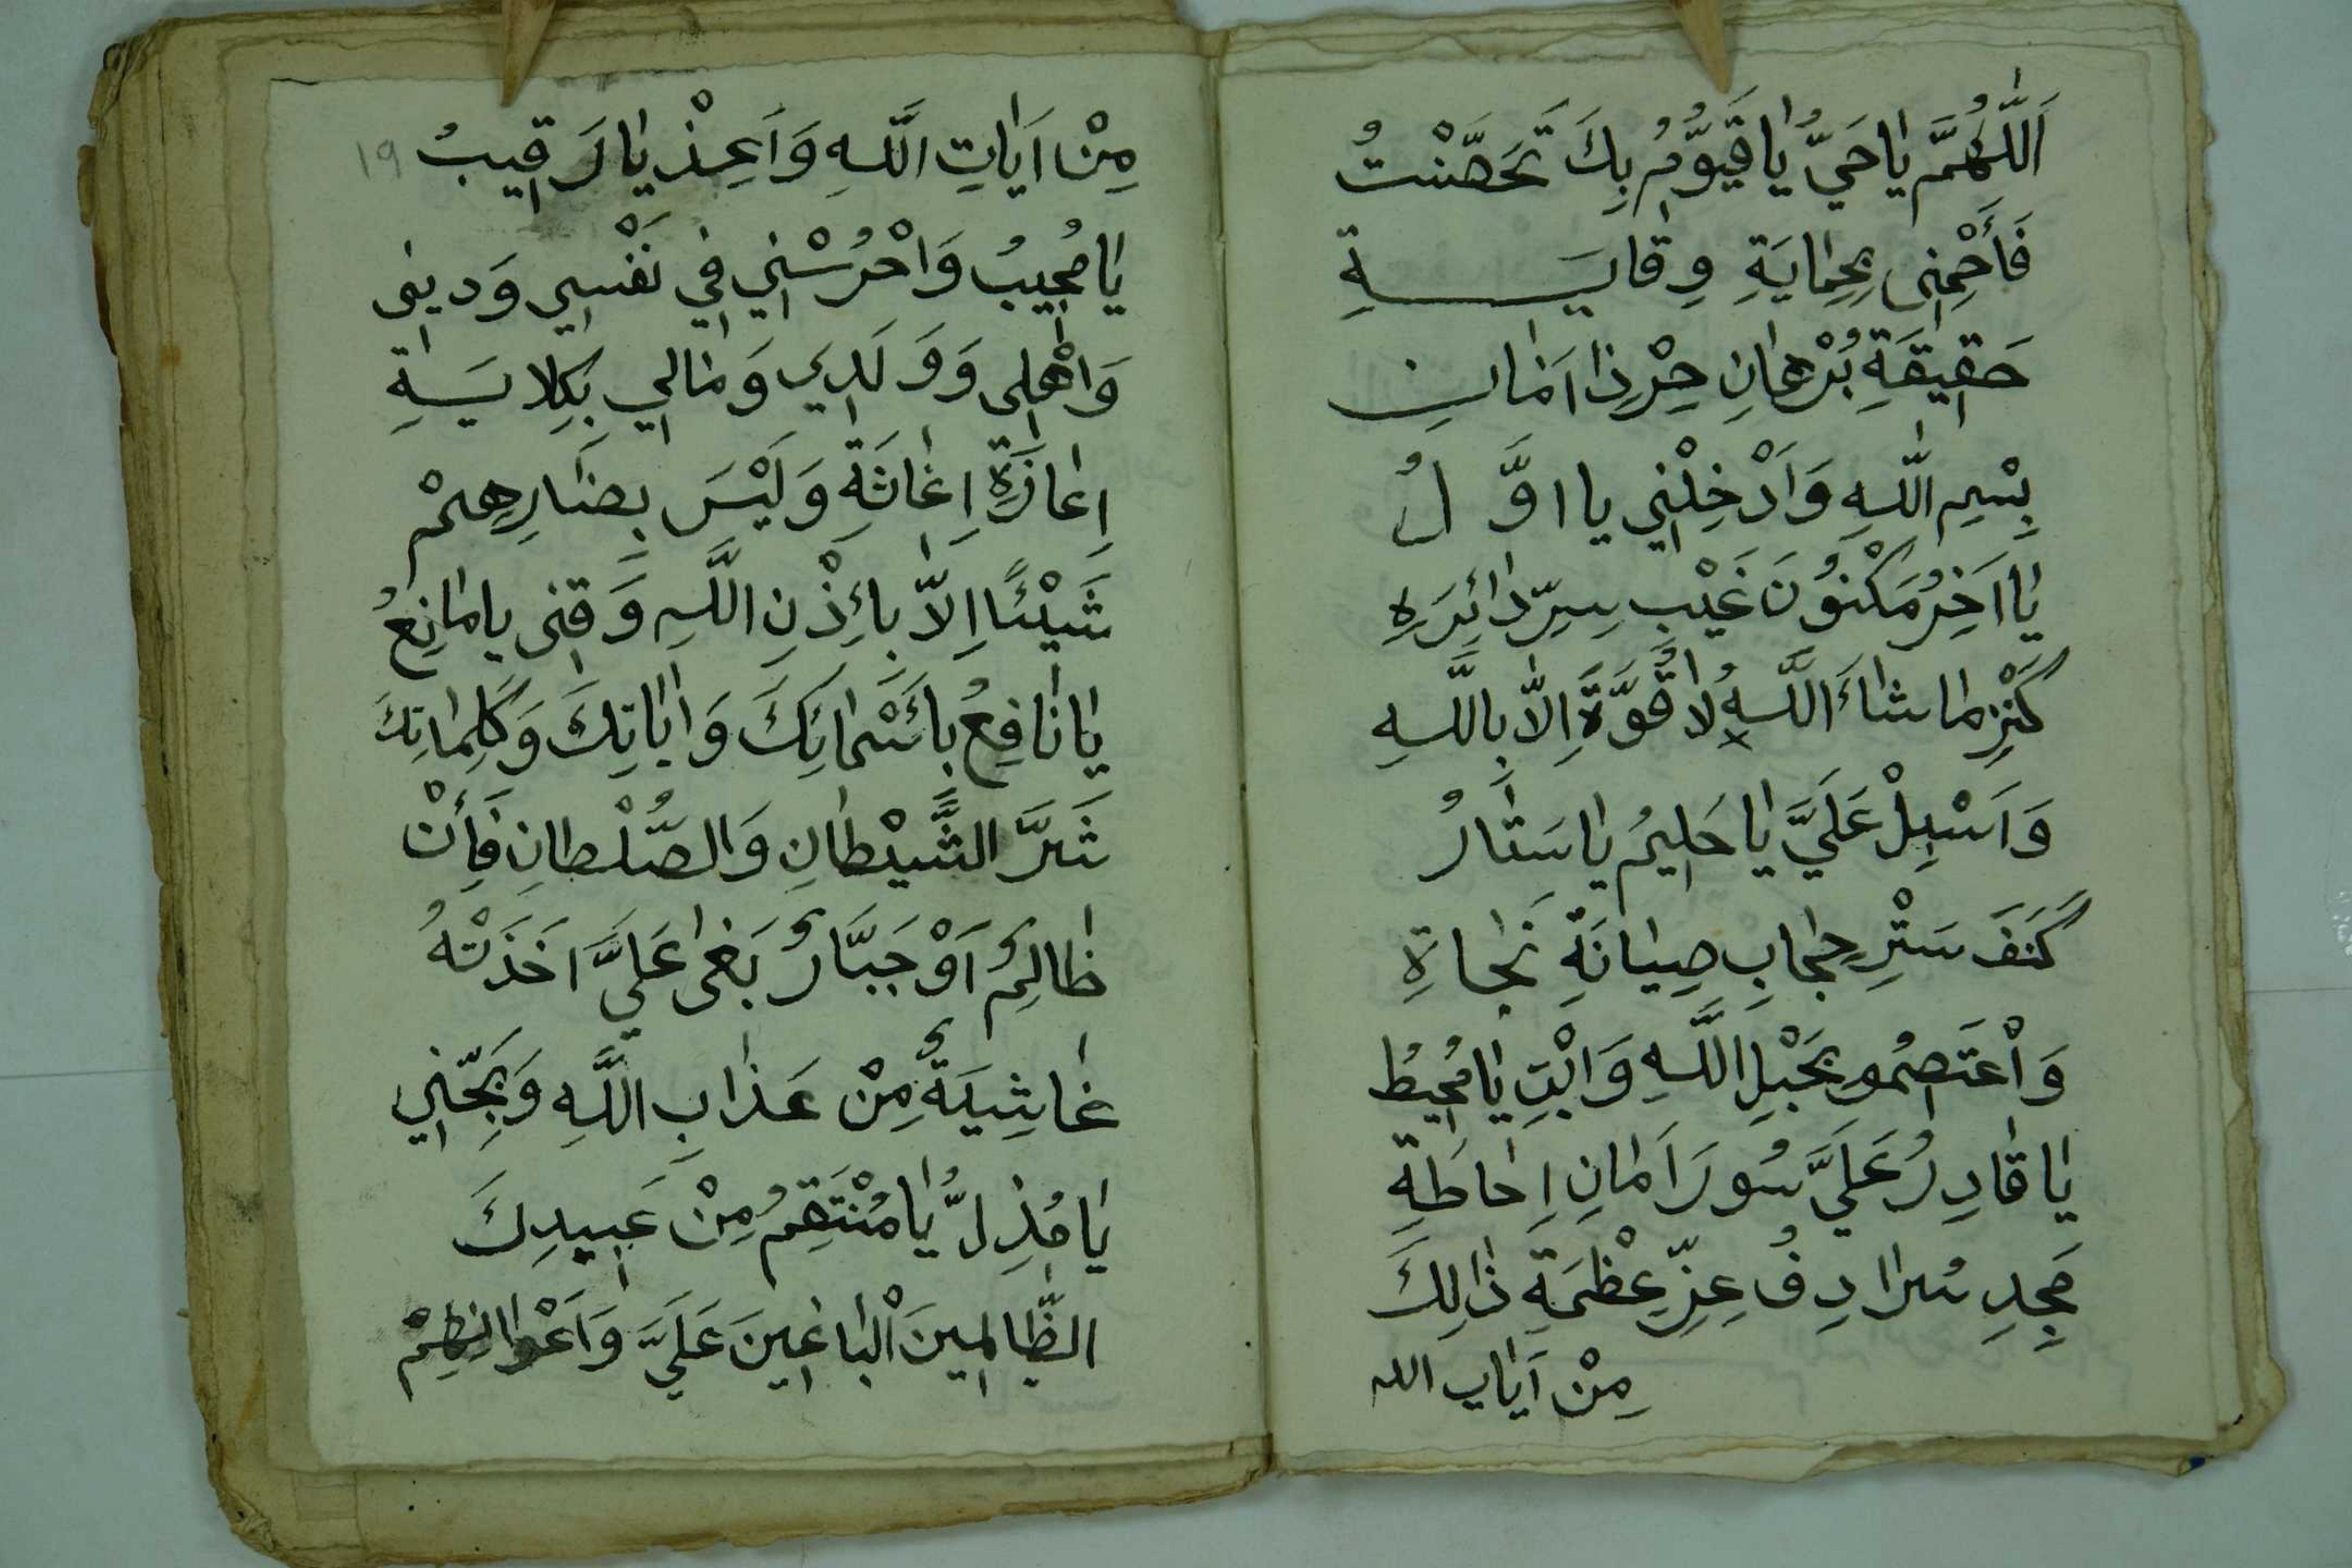 اَللّٰهُمَّ يٰا حَيُّ يٰا قَيُّوْمُ بِكَ تَحَصَّنْتُ
فَأَحْمِنِى بِحِمٰايَةِ وِقٰايَـــةِ
حَقِيْقَةِ بُرْهٰانِ حِرْزِ اَمٰانِ
بِسْمِ اللّٰهِ وَاَدْخِلْنِي يا اوَّلُ
يٰا اَخِرُ مَكْنُوْنَ غَيْبِ سِرِّ دٰائِرَهِ
كَنْزِ مٰا شٰاءَ اللَّهُ لٰا قُوَّةَ اِلاّٰ بِاللَّهِ
وَاَسْبِلْ عَلَيَّ يٰا حَلِيْمُ يٰا سَتَّارُ
كَنَفَ سَتْرِ حِجٰابِ صِيٰانَةِ نَجٰاةِ
وَاْعْتَصِمُو بِحَبْلِ اللَّهِ وَابْنِ يٰا مُحِيْطُ
يٰا قٰادِرُ عَلَيَّ سُورَ اَمٰانِ اِحٰاطَةِ
مَجِدِ سُرادِفُ عِزِّ عِظْمَةِ ذٰالِكَ
مِنْ اَيٰاتِ الله
مِنْ اَيٰاتِ اللَّهِ وَاَعِذْ يٰا رَقِيْبُ ١٩
يٰا مُجِيبُ وَاحْرُسْنِي فِي نَفْسِي وَدِينِى
وَاَهْلِى وَوَلَدِي وَمٰالِي بِكِلايَسَةِ
اِعٰاذَةِ اِغٰاثَةِ وَلَيْسَ بِضَارِهِمْ
شَيْئًا اِلاّٰ بِأِذْنِ اللَّهِ وَقِنِى يٰا مٰانِعُ
يٰا نٰافِعُ بِأَسْمٰائِكَ وَاٰيٰاتِكَ وَكَلِمٰاتِكَ
شَرَّ الشَّيْطٰانِ وَالصُّلْطٰانِ فَأِنْ
ظٰالِمٌ اَوْ جَبَّارٌ بَغٰى عَلَيَّ اَخَذَتْهُ
غٰاشِيَةٌ مِنْ عَذٰابِ اللَّهِ وَنَجِّنِي
يٰا مُذِلُّ يٰا مُنْتَقِمُ مِنْ عَبِيدِكَ
الظّٰالِمِينَ اْلبٰاغِينَ عَلَيَّ وَاَعْوٰانِهِمْ